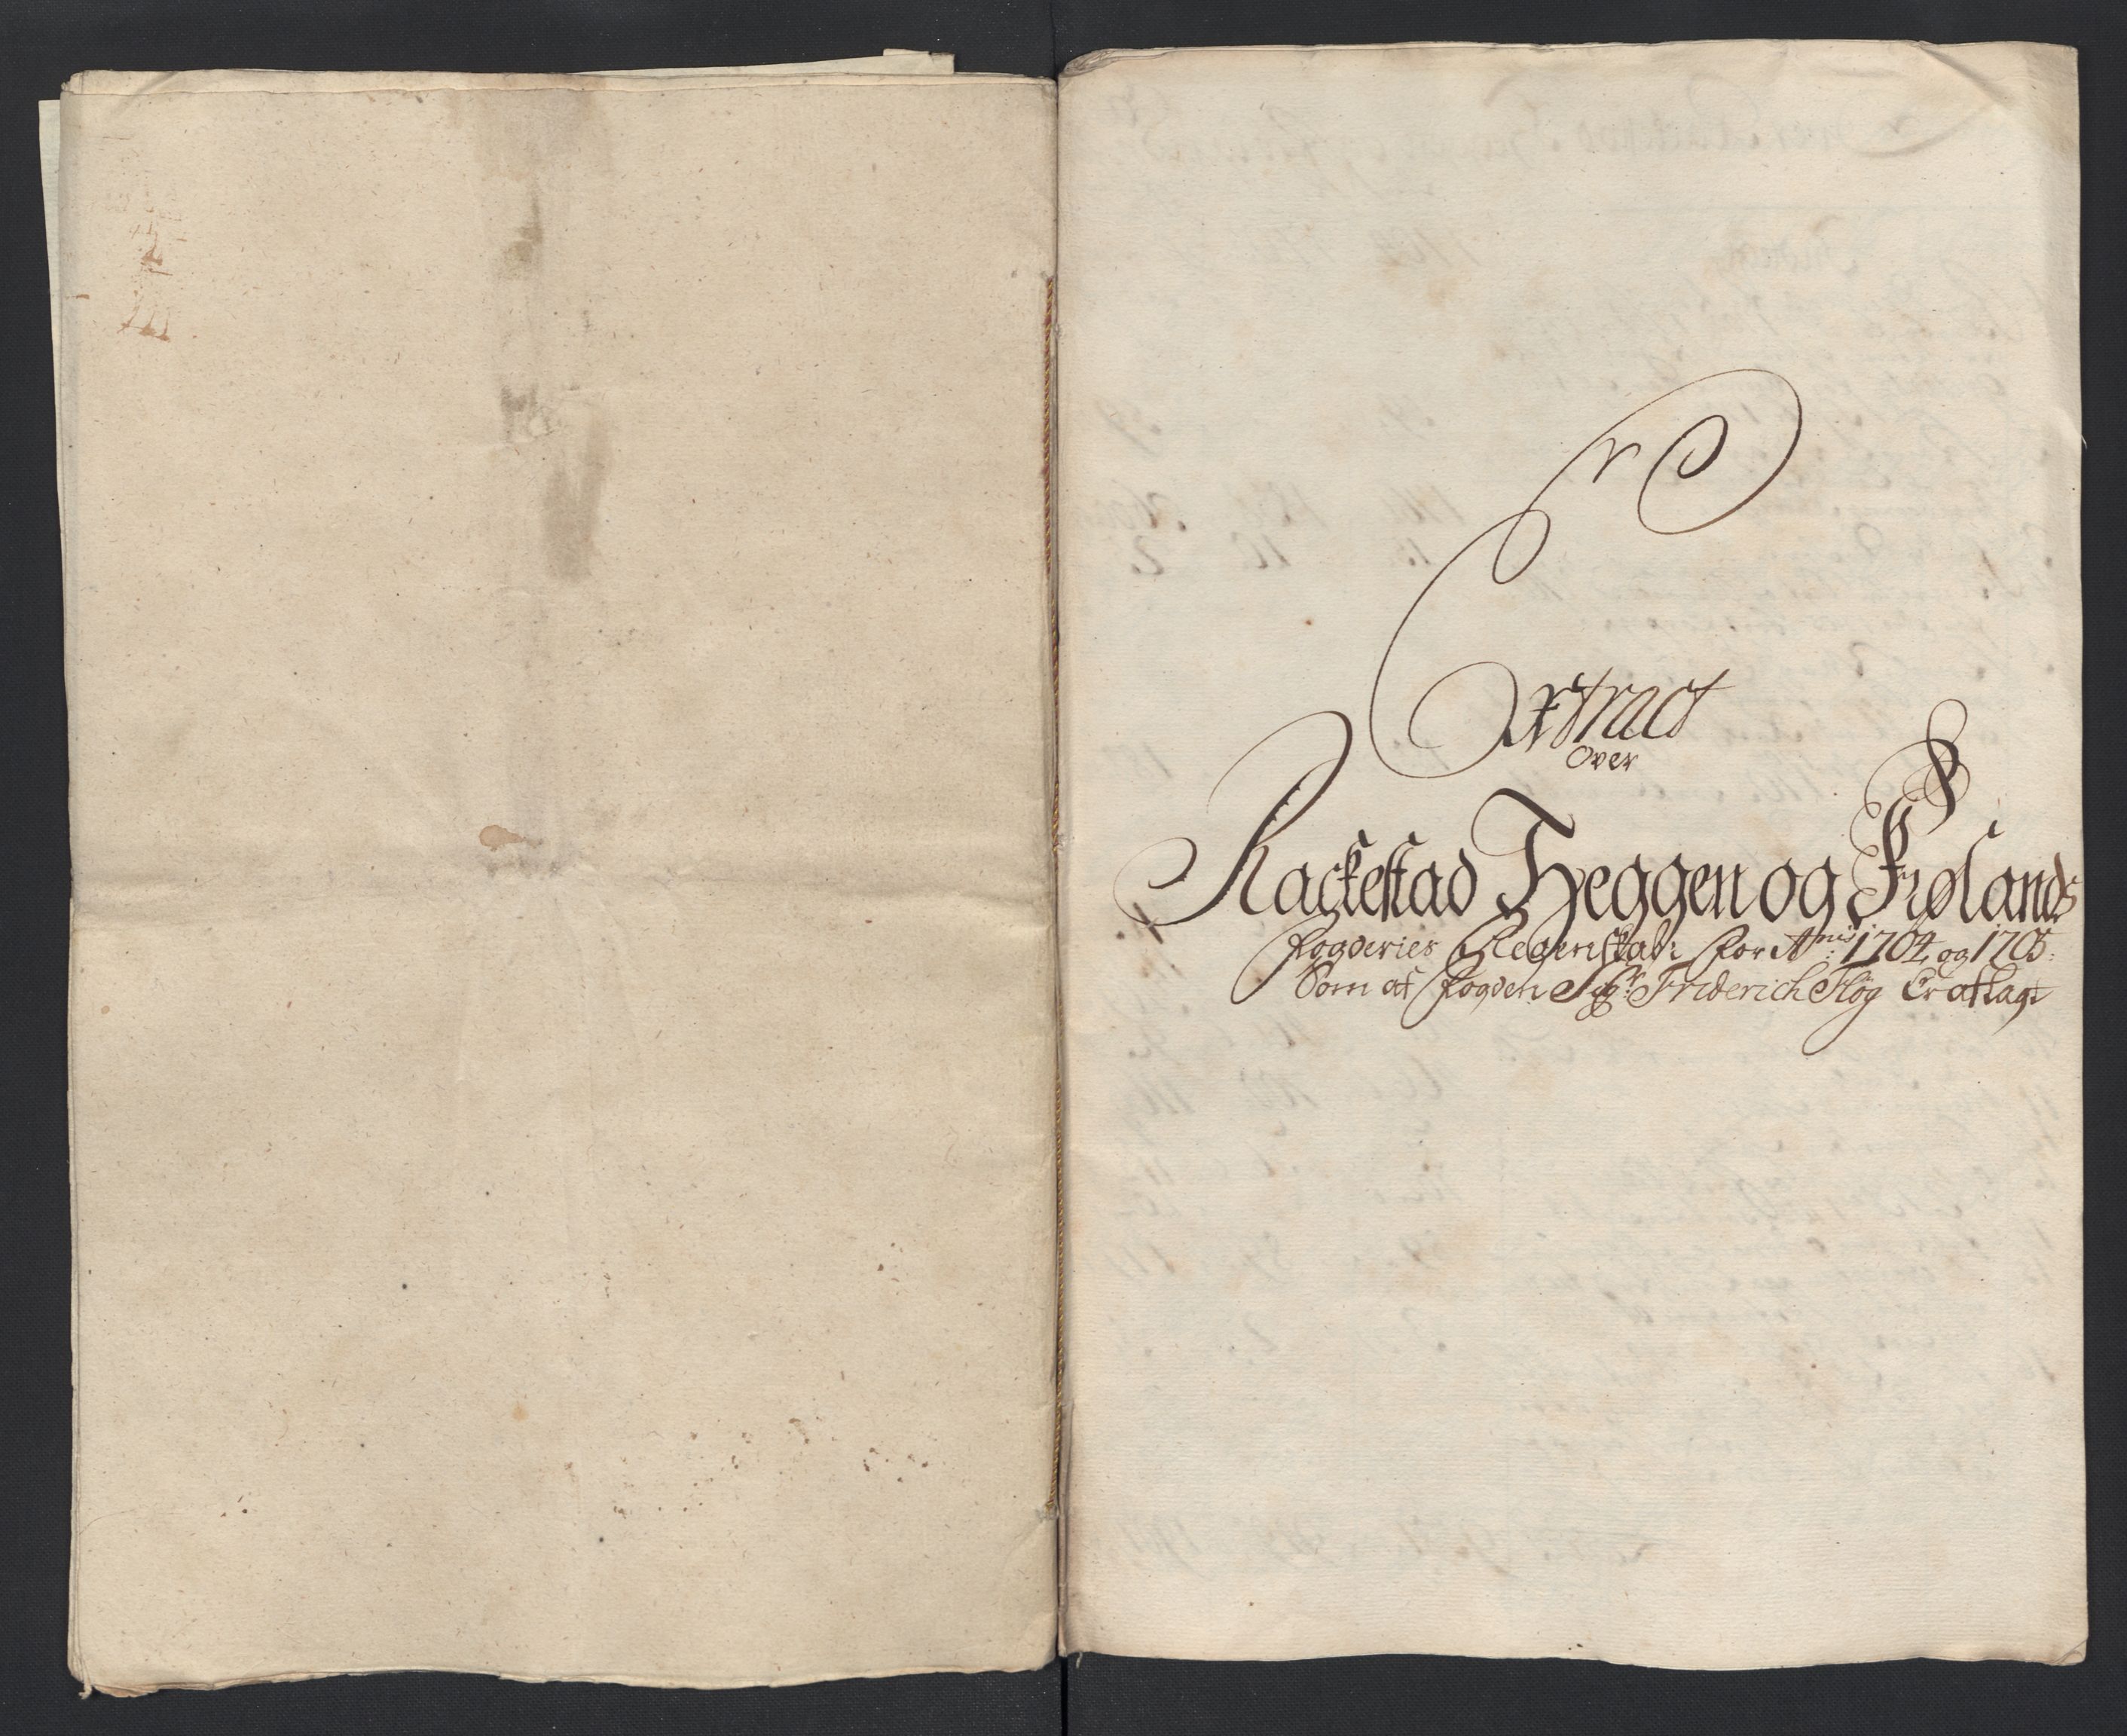 Extract
Over
Rackestad Heggen og Frølands
fogderies Regenskab: for A:nis 1704 og 1705.
Som af fogden Sr. Friderich Fløg Er aflagt